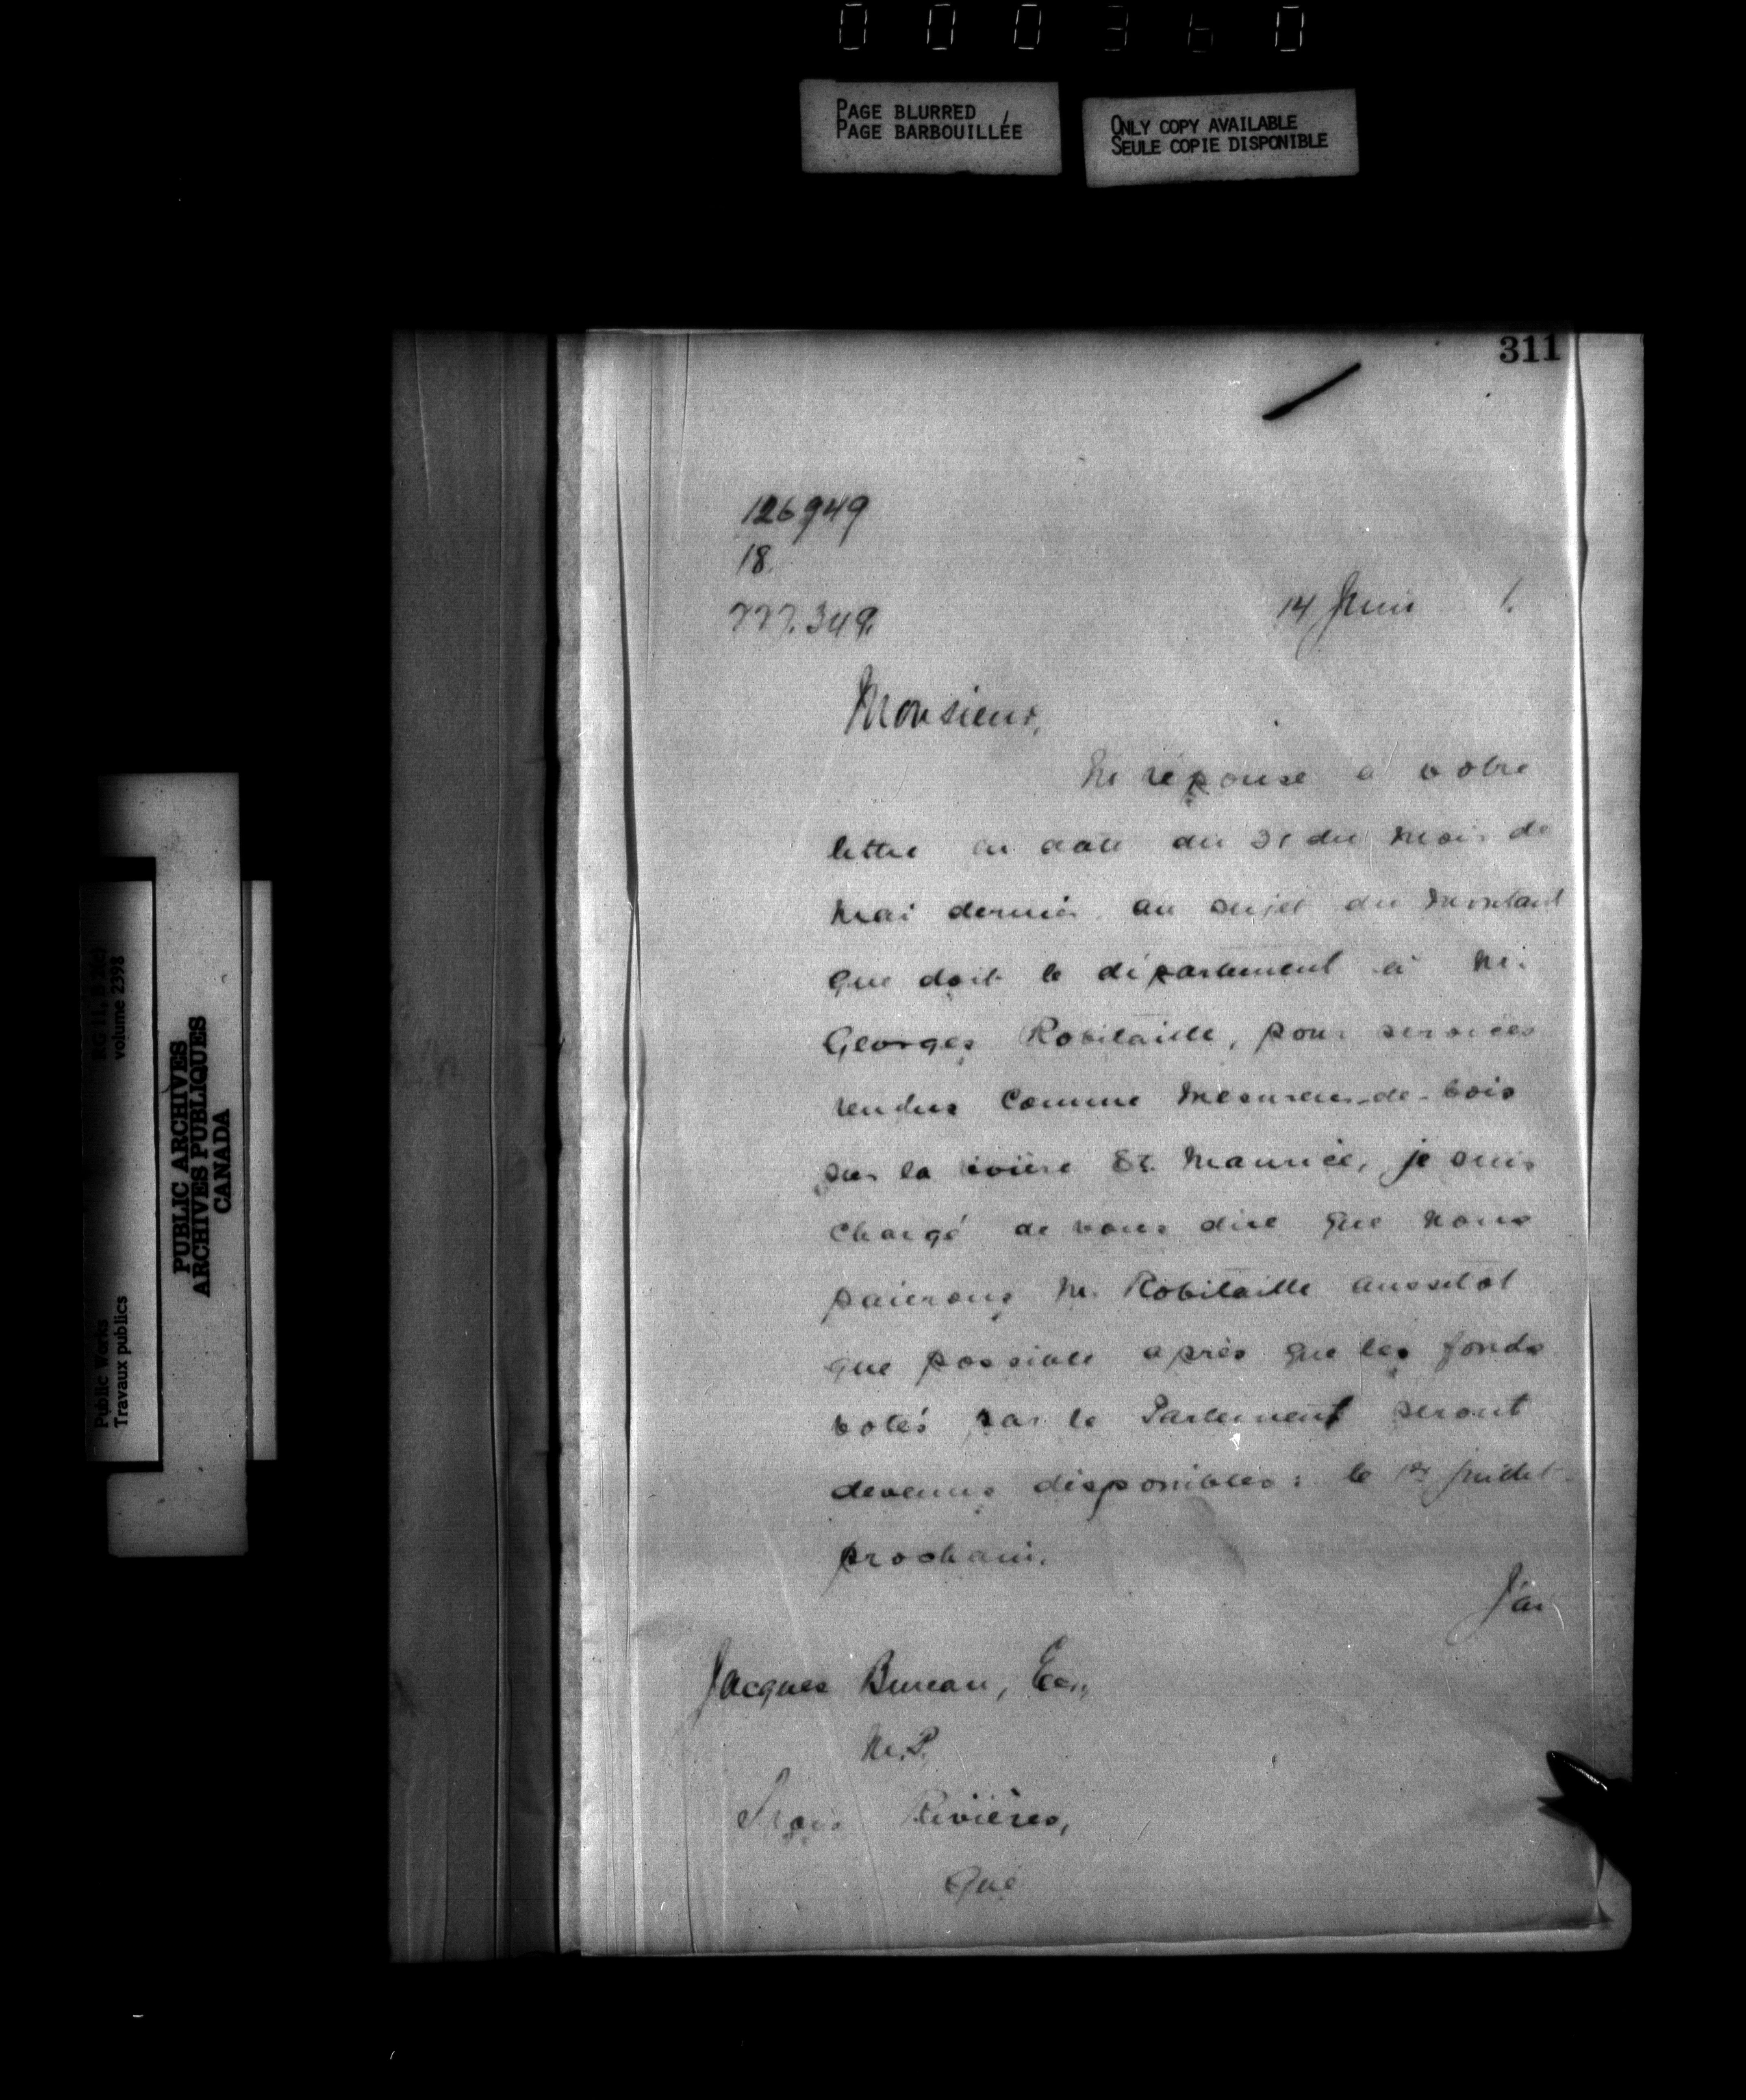 000360
PAGE BLURRED
PAGE BARBOUILLÉE
ONLY COPY AVAILABLE
SEULE COPIE DISPONIBLE
311
126949
18
349.
14 Juin 1.
Monsieur,
En réponse à votre
lettre en date du 31 du mois de
mai dernier au sujet du montant
que doit le département à M.
Georges Robitaille, pour services
rendus comme mesureur-de-bois
sur la rivière St. Maurice, je suis
chargé de vous dire que nous
paierons M. Robitaille aussitôt
que possible après que les fonds
votés par le Parlement seront
devenus disponibles: le 1er Juillet
prochain.
J'ai
Jacques Bureau, Ecr.,
M.P.
Trois Rivières,
Qué
RG 11,
volume 2398
PUBLIC ARCHIVES
ARCHIVES PUBLIQUES
CANADA
Public Works
Travaux publics